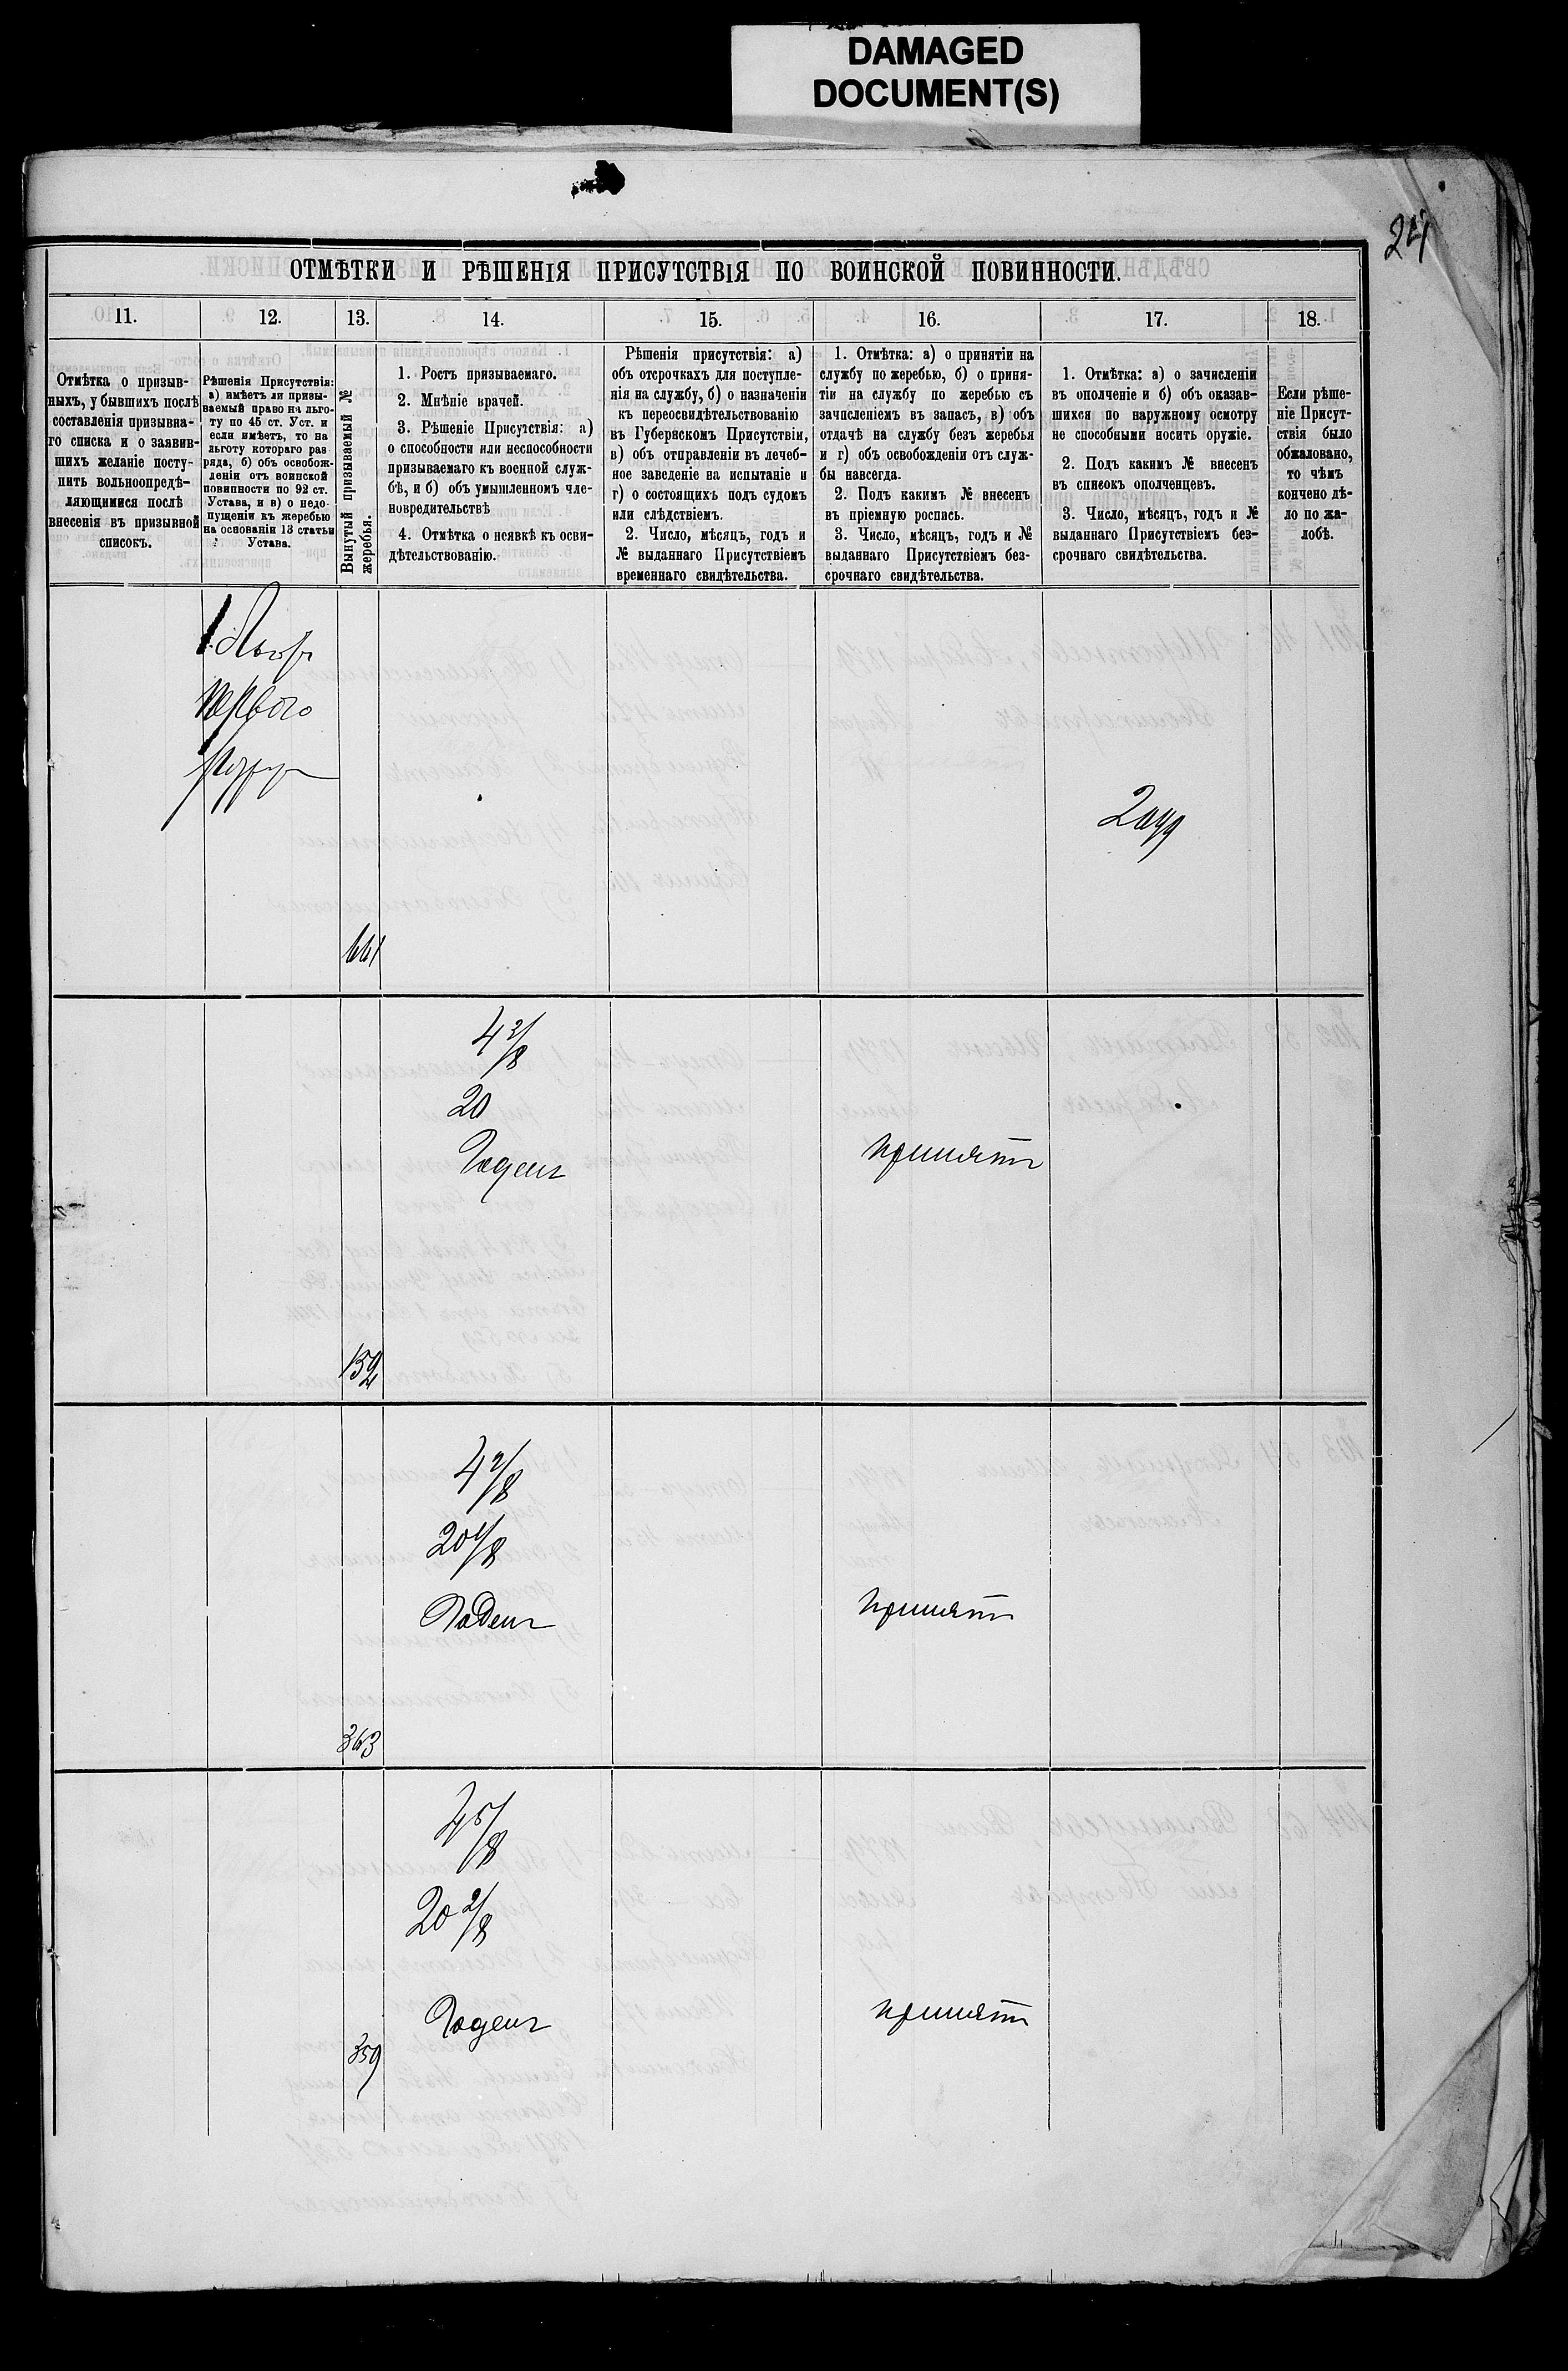 DAMAGED
DOCUMENT(S)
24
ОТМѢТКИ И РѢШЕНІЯ ПРИСУТСТВІЯ ПО ВОИНСКОЙ ПОВИННОСТИ.
11.
12.
13.
14.
15.
16.
17.
18.
Отмѣтка о призыв-
ныхъ, у бывшихъ послѣ
составленія призывна-
го списка и о заявив-
шихъ желаніе посту-
пить вольноопредѣ-
ляющимися послѣ
внесенія въ призывной
списокъ.
Рѣшенія Присутствія:
а) имѣетъ ли призы-
ваемый право на льго-
ту по 45 ст. Уст. и
если имѣетъ, то на
льготу котораго раз
ряда, б) объ освобож-
деніи отъ воинской
повинности по 92 ст.
Устава, и в) о недо-
пущеніи къ жеребью
на основаніи 13 статьи
Устава.
Вынутый призываемый №
жеребья.
1. Ростъ призываемаго.
2. Мнѣніе врачей.
3. Рѣшеніе Присутствія: а)
о способности или неспособности
призываемаго къ военной служ-
бѣ, и б) объ умышленномъ чле-
новредительствѣ
4. Отмѣтка о неявкѣ къ осви-
дѣтельствованію.
Рѣшенія присутствія: а)
объ отсрочкахъ для поступле-
нія на службу, б) о назначеніи
къ переосвидѣтельствованію
въ Губернскомъ Присутствіи,
в) объ отправленіи въ лечеб-
ное заведеніе на испытаніе и
г) о состоящихъ подъ судомъ
или слѣдствіемъ.
2. Число, мѣсяцъ, годъ и
№ выданнаго Присутствіемъ
временнаго свидѣтельства.
1. Отмѣтка: а) о принятіи на
службу по жеребью, б) о приня-
тіи на службу по жеребью съ
зачисленіемъ въ запасъ, в) объ
отдачѣ на службу безъ жеребья
и г) объ освобожденіи отъ служ-
бы навсегда.
2. Подъ какимъ № внесенъ
въ пріемную роспись.
3. Число, мѣсяцъ, годъ и №
выданнаго Присутствіемъ без-
срочнаго свидѣтельства.
1. Отмѣтка: а) о зачисленіи
въ ополченіе и б) объ оказав-
шихся по наружному осмотру
не способными носить оружіе.
2. Подъ какимъ № внесенъ
въ списокъ ополченцевъ.
3. Число, мѣсяцъ, годъ и №
выданнаго Присутствіемъ без-
срочнаго свидѣтельства.
Если рѣше-
ніе Присут-
ствія было
обжаловано,
то чѣмъ
кончено дѣ-
ло по жа-
лобѣ.
перваго
661
4 3/8
20
Годенъ
принятъ
159
4 2/8
20 4/8
Годенъ
принятъ
363
4 5/8
20 2/8
Годенъ
принятъ
359